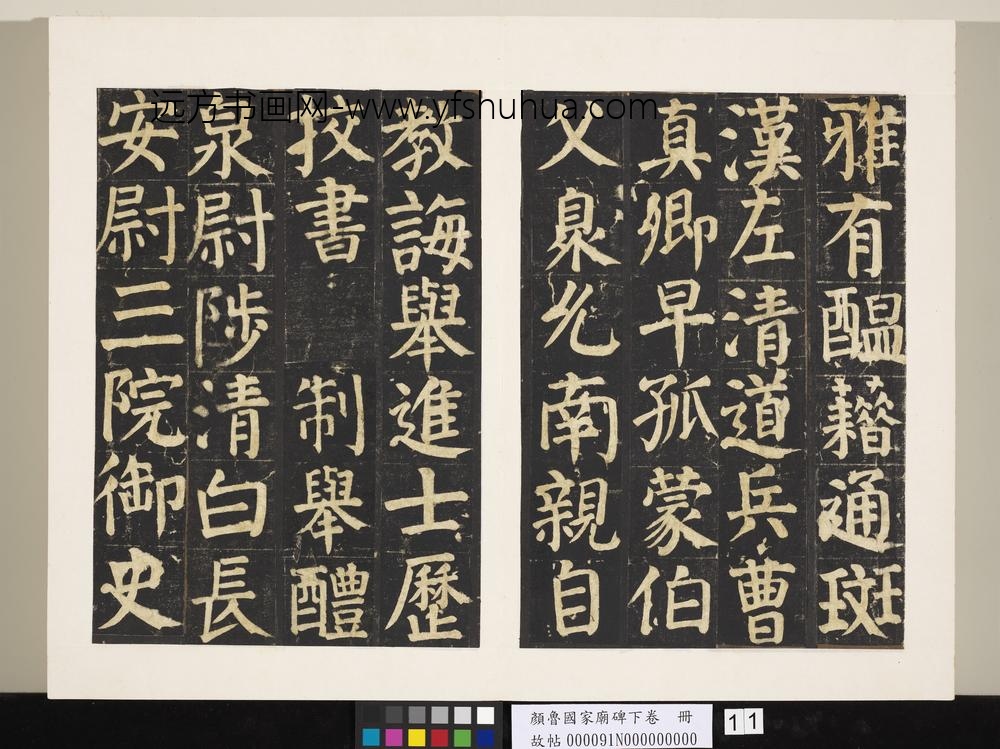 远方书画网-www.yfshuhua.com
雅有醞藉通斑
漢左清道兵曹
真卿早孤蒙伯
父臮允南親自
教誨舉進士歷
挍書 制舉醴
泉尉陟清白長
安尉三院御史
顏魯國家廟碑下卷 冊
故帖 000091N000000000
11